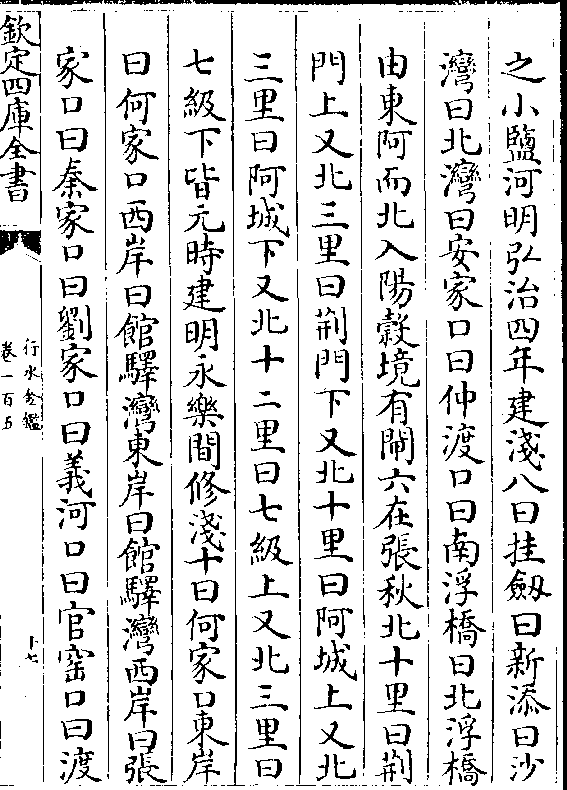 之小鹽河明弘治四年建淺八曰挂劔曰新添曰沙
灣曰北灣曰安家口曰仲渡口曰南浮橋曰北浮橋
由東阿而北入陽榖境有閘六在張秋北十里曰荆
門上又北三里曰荆門下又北十里曰阿城上又北
三里曰阿城下又北十二里曰七級上又北三里曰
七級下皆元時建明永樂間修淺十曰何家口東岸
曰何家口西岸曰館驛灣東岸曰館驛灣西岸曰張
家口曰秦家口曰劉家口曰義河口曰官窑口曰渡
欽定四庫全書
行水金鑑
卷一百五
十七